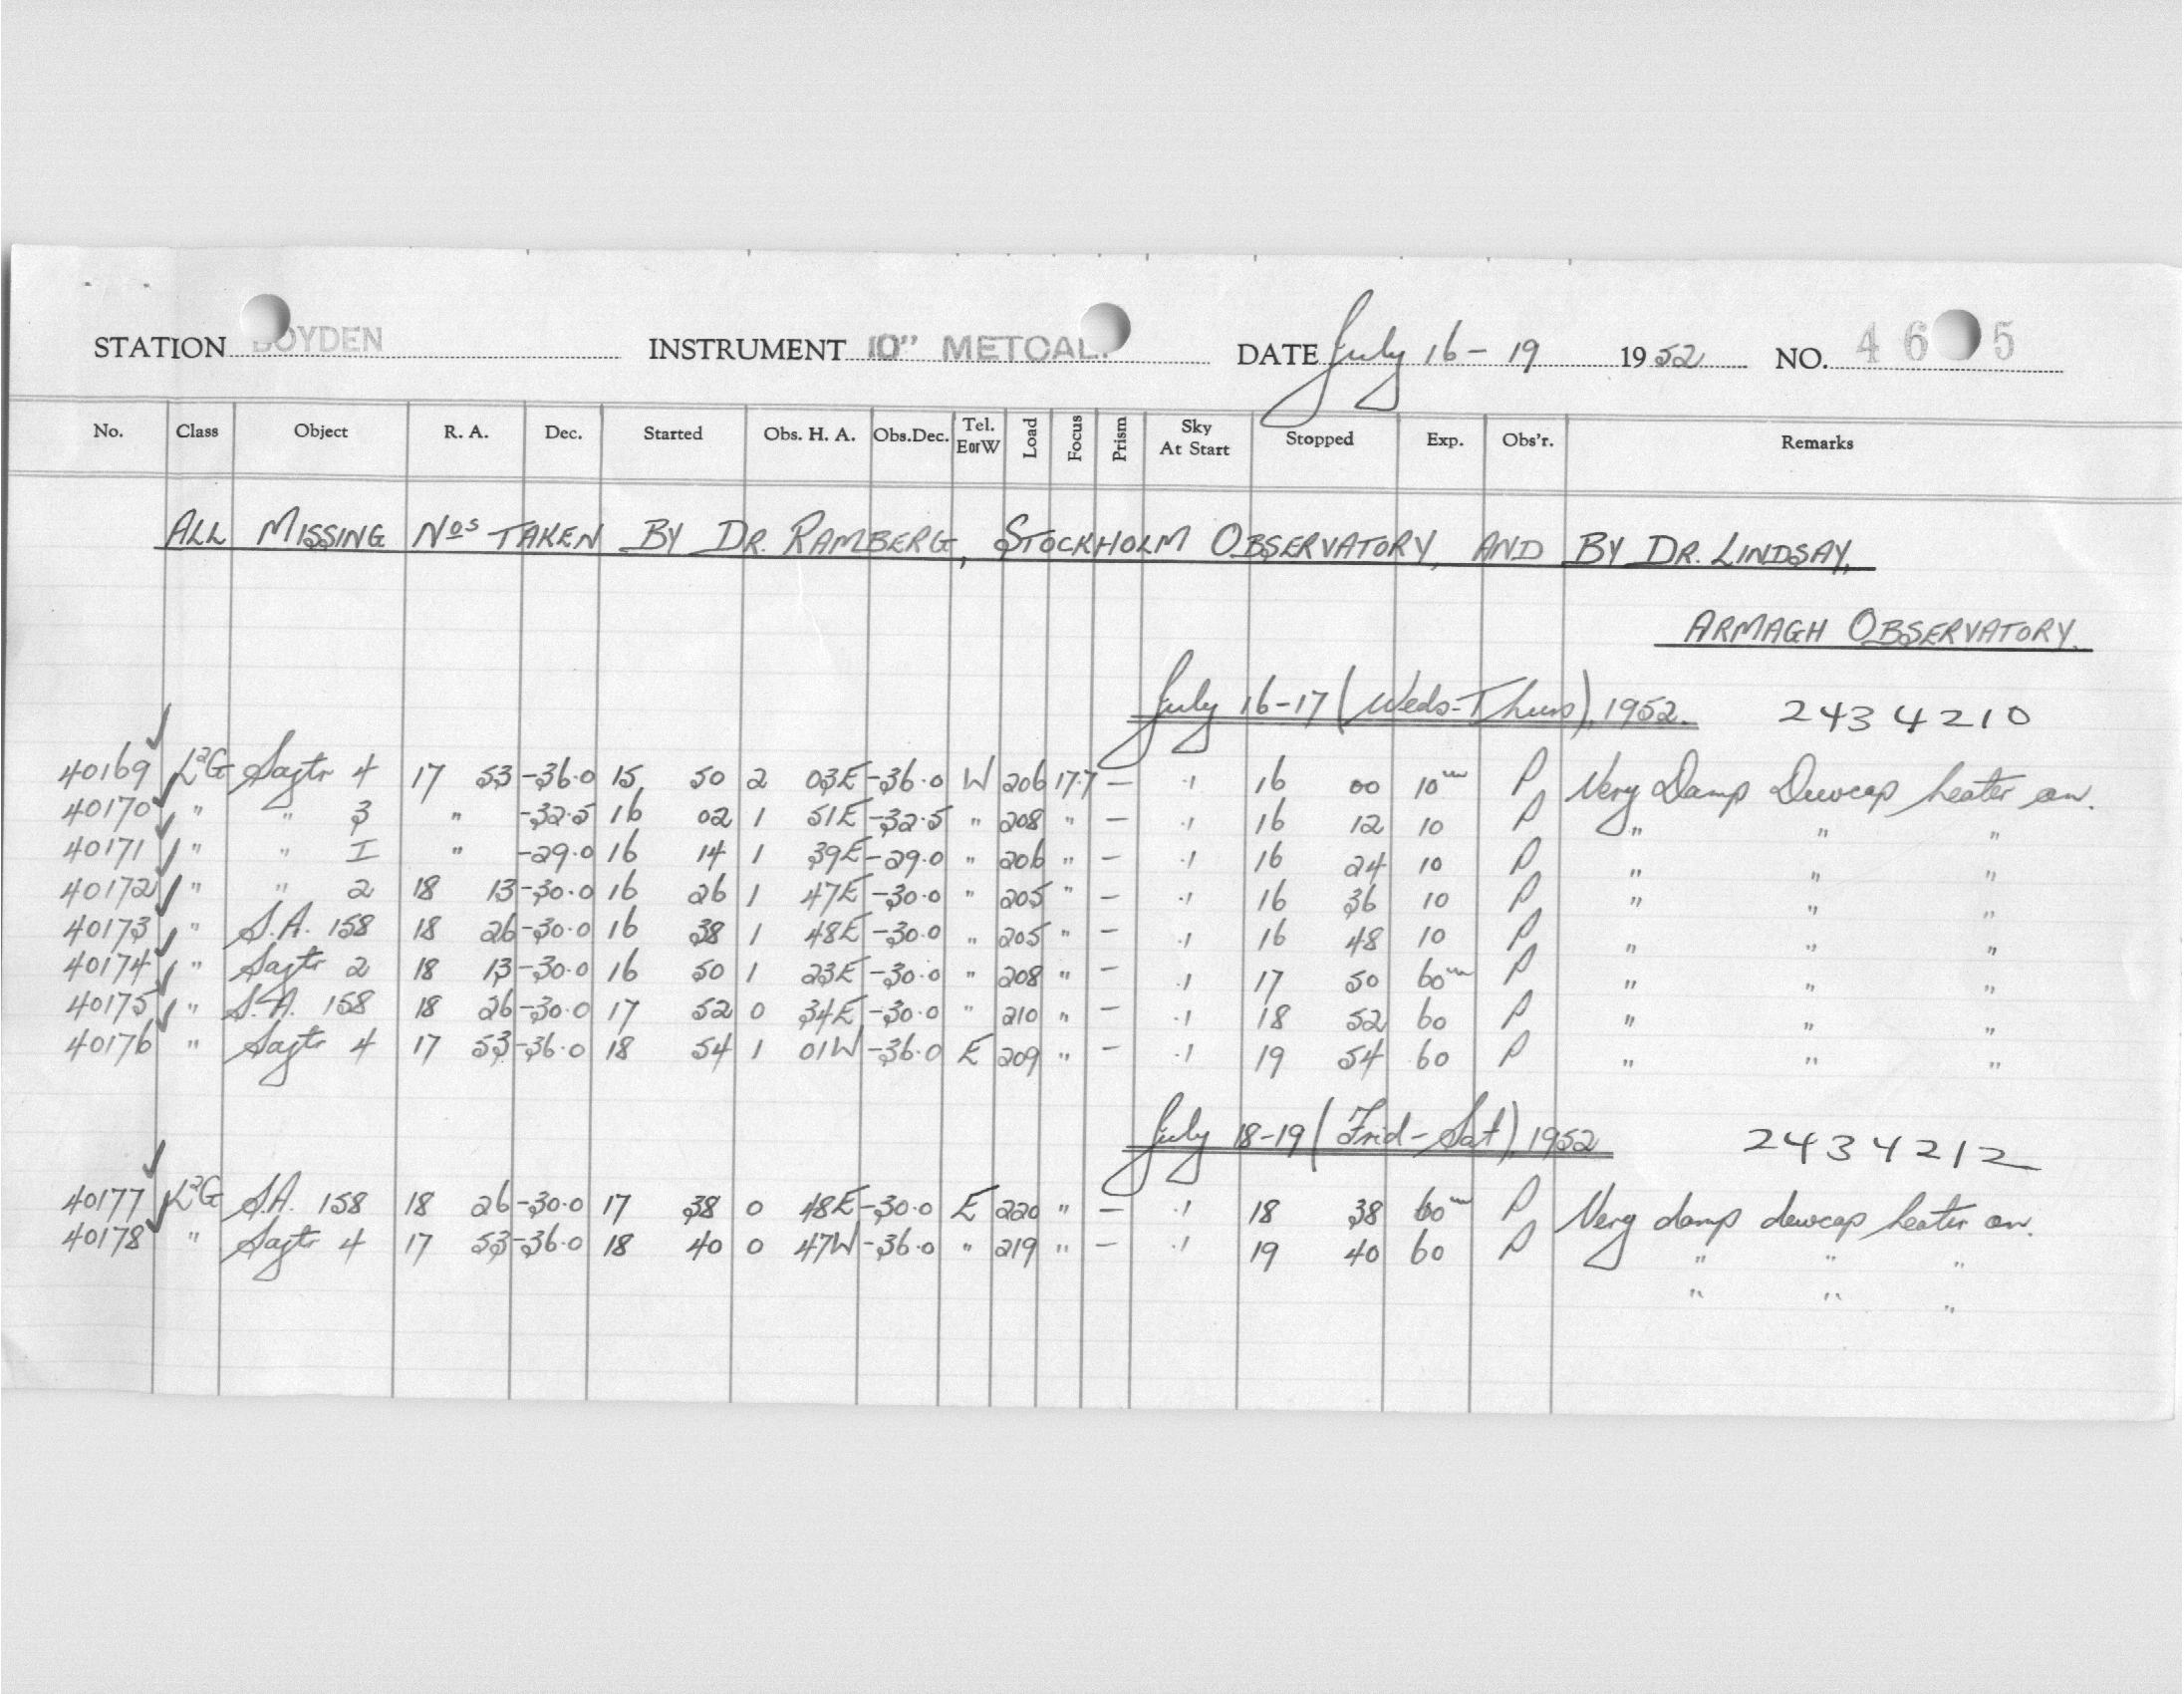 STATION BOYDEN INSTRUMENT 10" METCALF DATE July 16-19 1952 NO. 46 5
No. Class Object R. A. Dec. Started Obs. H. A. Obs.Dec. Tel. EorW Load Focus Prism Sky At Start Stopped Exp. Obs'r. Remarks
ALL MISSING Nos TAKEN BY DR. RAMBERG, STOCKHOLM OBSERVATORY, AND BY DR. LINDSAY,
ARMAGH OBSERVATORY.
July 16-17 (Weds-Thurs), 1952. 2434210
40169 L²G Sagtr 4 17 53 -36.0 15 50 2 03E -36.0 W 206 17.7 — .1 16 00 10m P Very Damp Dewcap heater on.
40170 " " 3 " -32.5 16 02 1 51E -32.5 " 208 " — .1 16 12 10 P " " "
40171 " " I " -29.0 16 14 1 39E -29.0 " 206 " — .1 16 24 10 P " " "
40172 " " 2 18 13 -30.0 16 26 1 47E -30.0 " 205 " — .1 16 36 10 P " " "
40173 " S.A. 158 18 26 -30.0 16 38 1 48E -30.0 " 205 " — .1 16 48 10 P " " "
40174 " Sagtr 2 18 13 -30.0 16 50 1 23E -30.0 " 208 " — .1 17 50 60m P " " "
40175 " S.A. 158 18 26 -30.0 17 52 0 34E -30.0 " 210 " — .1 18 52 60 P " " "
40176 " Sagtr 4 17 53 -36.0 18 54 1 01W -36.0 E 209 " — .1 19 54 60 P " " "
July 18-19 (Frid-Sat), 1952 2434212
40177 L²G S.A. 158 18 26 -30.0 17 38 0 48E -30.0 E 220 " — .1 18 38 60m P Very damp dewcap heater on.
40178 " Sagtr 4 17 53 -36.0 18 40 0 47W -36.0 " 219 " — .1 19 40 60 P " " "
" " "